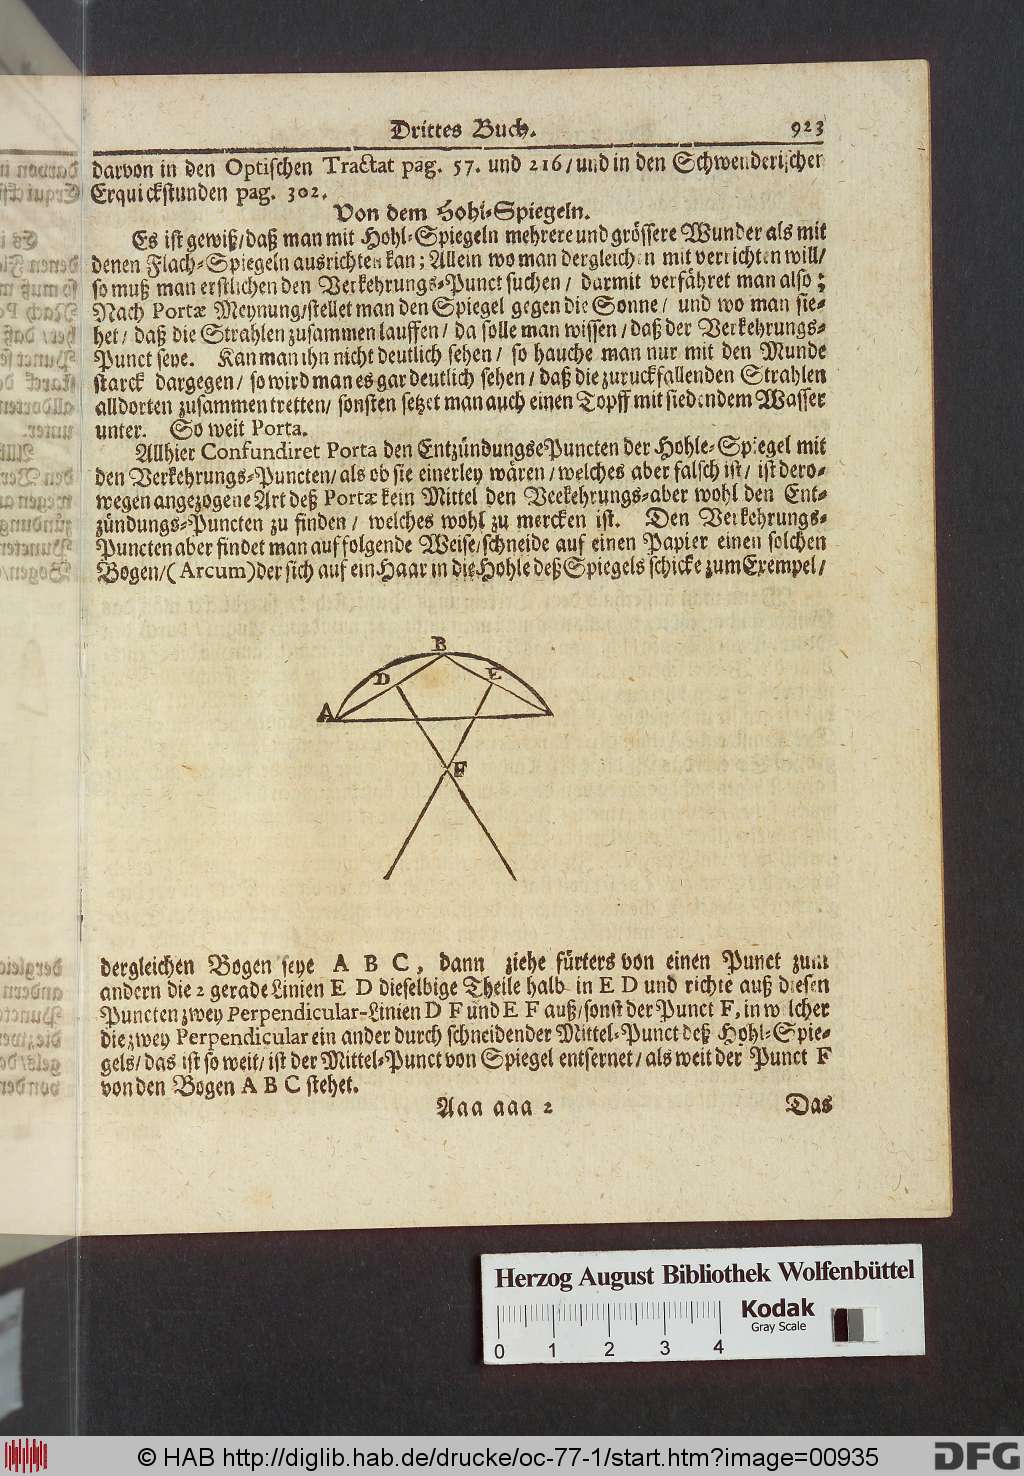 Drittes Buch. 923
darvon in den Optischen Tractat pag. 57. und 216/und in den Schwenderischer
Erquickstunden pag. 302.
Von dem Hohl-Spiegeln.
Es ist gewiß/daß man mit Hohl-Spiegeln mehrere und grössere Wunder als mit
denen Flach-Spiegeln ausrichten kan; Allein wo man dergleichen mit verrichten will/
so muß man erstlichen den Verkehrungs-Punct suchen/ darmit verfähret man also;
Nach Portæ Meynung/stellet man den Spiegel gegen die Sonne/ und wo man sie-
het/ daß die Strahlen zusammen lauffen/ da solle man wissen/daß der Verkehrungs-
Punct seye. Kan man ihn nicht deutlich sehen/ so hauche man nur mit den Munde
starck dargegen/ so wird man es gar deutlich sehen/ daß die zuruckfallenden Strahlen
alldorten zusammen tretten/ sonsten setzet man auch einen Topff mit siedendem Wasser
unter. So weit Porta.
Allhier Confundiret Porta den EntzündungsePuncten der Hohle-Spiegel mit
den Verkehrungs-Puncten/als ob sie einerley wären/welches aber falsch ist/ ist dero-
wegen angezogene Art deß Portæ kein Mittel den Veekehrungs-aber wohl den Ent-
zündungs-Puncten zu finden/ welches wohl zu mercken ist. Den Verkehrungs-
Puncten aber findet man auf folgende Weise/schneide auf einen Papier einen solchen
Bogen/(Arcum)der sich auf ein Haar in die Hohle deß Spiegels schicke zum Exempel/
B
D E
A
F
dergleichen Bogen seye A B C, dann ziehe fürters von einen Punct zum
andern die 2 gerade Linien E D dieselbige Theile halb in E D und richte auß diesen
Puncten zwey Perpendicular-Linien D F und E F auß/sonst der Punct F, in welcher
die zwey Perpendicular ein ander durch schneidender Mittel-Punct deß Hohl-Spie-
gels/das ist so weit/ist der Mittel-Punct von Spiegel entfernet/als weit der Punct F
von den Bogen A B C stehet.
Aaa aaa 2 Das
Herzog August Bibliothek Wolfenbüttel
Kodak
Gray Scale
0 1 2 3 4
© HAB http://diglib.hab.de/drucke/oc-77-1/start.htm?image=00935
DFG